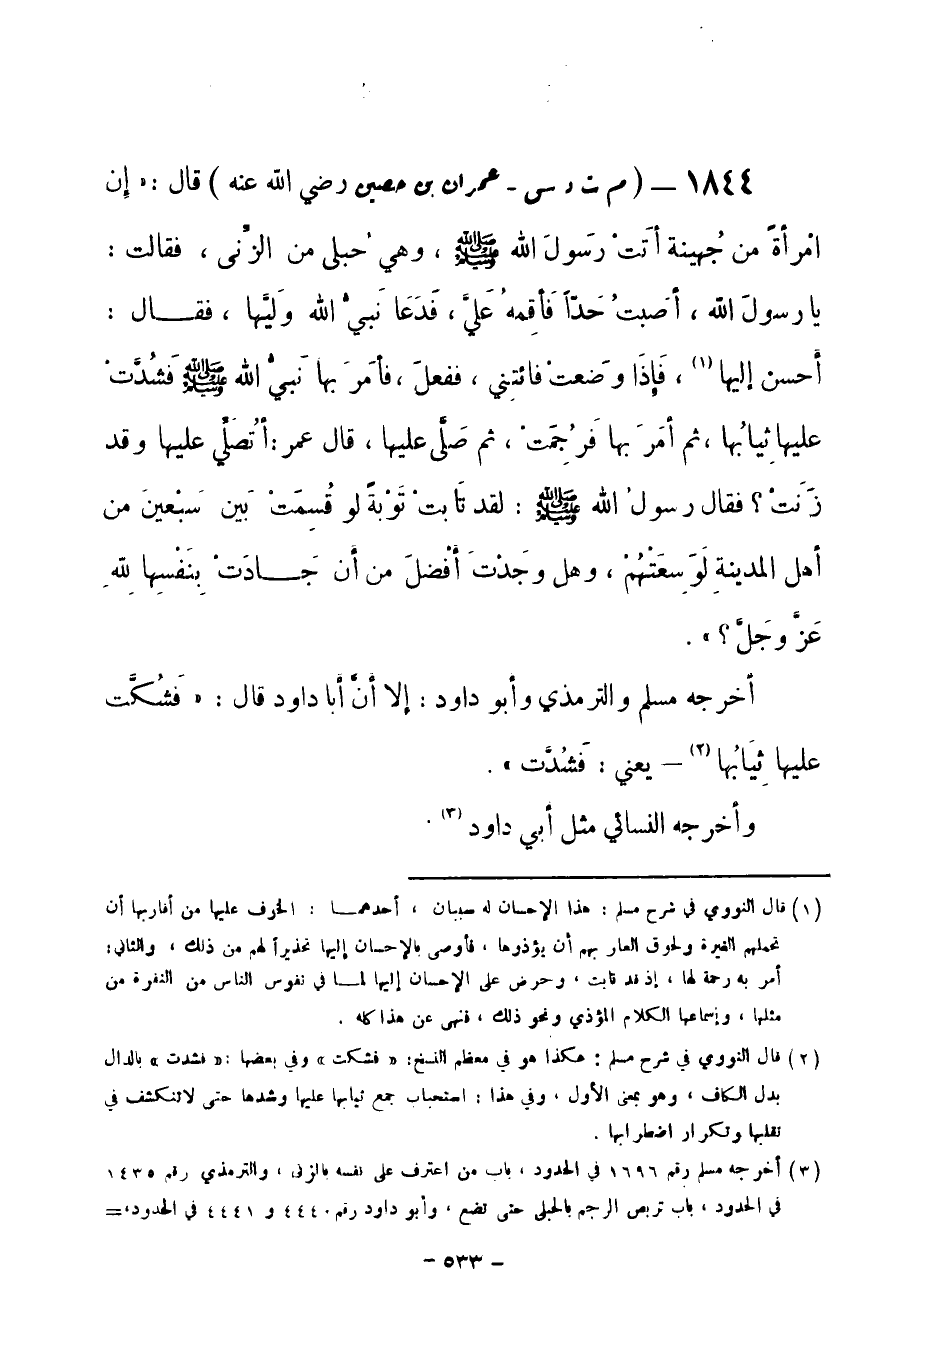 ١٨٤٤ – ( م ت د س - عمران بن حصين رضي الله عنه ) قال : « إن
امْرأةً من جُهينة أَتتْ رسَولَ الله ﷺ ، وهي حُبلى من الزِّنى ، فقالت :
يا رسولَ الله ، أَصَبتُ حَدّاً فَأقِمهُ عَليَّ ، فَدَعَا نَبيُّ الله وَليَّها ، فقـــال :
أَحسن إليها (١) ، فَإِذَا وضَعتْ فائتِني ، ففعلَ ، فأمَرَ بها نَبيُّ الله ﷺ فَشُدَّتْ
عليها ثِيابُها ، ثم أَمَرَ بها فَرُجِمَتْ ، ثم صَلَّى عليها ، قال عمر : أَتُصَلِّي عليها وقد
زَنَتْ ؟ فقال رسولُ الله ﷺ : لقد تَابتْ تَوْبةً لو قُسِمَتْ بَين سَبْعينَ من
أهل المدينةِ لَوَسِعَتْهُمْ ، وهل وجَدْتَ أَفْضلَ من أن جَـــادَتْ بِنَفْسِها لِلّهِ
عَزَّ وجَلَّ ؟ » .
أخرجه مسلم والترمذي وأبو داود : إلا أنَّ أبا داود قال : « فَشُكَّت
عليها ثِيَابُها (٢) – يعني : فَشُدَّت » .
وأخرجه النسائي مثل أبي داود (٣) .
(١) قال النووي في شرح مسلم : هذا الإحسان له سببان ، أحدهمـــا : الخوف عليها من أقاربها أن
تحملهم الغيرة ولحوق العار بهم أن يؤذوها ، فأوصى بالإحسان إليها تحذيراً لهم من ذلك ، والثاني:
أمر به رحمة لها ، إذ قد تابت ، وحرض على الإحسان إليها لمـــا في نفوس الناس من النفرة من
مثلها ، وإسماعها الكلام المؤذي ونحو ذلك ، فنهى عن هذا كله .
(٢) قال النووي في شرح مسلم : هكذا هو في معظم النسخ: « فشكت » وفي بعضها :« فشدت » بالدال
بدل الكاف ، وهو بمعنى الأول ، وفي هذا : استحباب جمع ثيابها عليها وشدها حتى لاتنكشف في
تقلبها وتكرار اضطرابها .
(٣) أخرجه مسلم رقم ١٦٩٦ في الحدود ، باب من اعترف على نفسه بالزنى ، والترمذي رقم ١٤٣٥
في الحدود ، باب تربص الرجم بالحبلى حتى تضع ، وأبو داود رقم ٤٤٤٠ و ٤٤٤١ في الحدود،=
- ٥٣٣ -